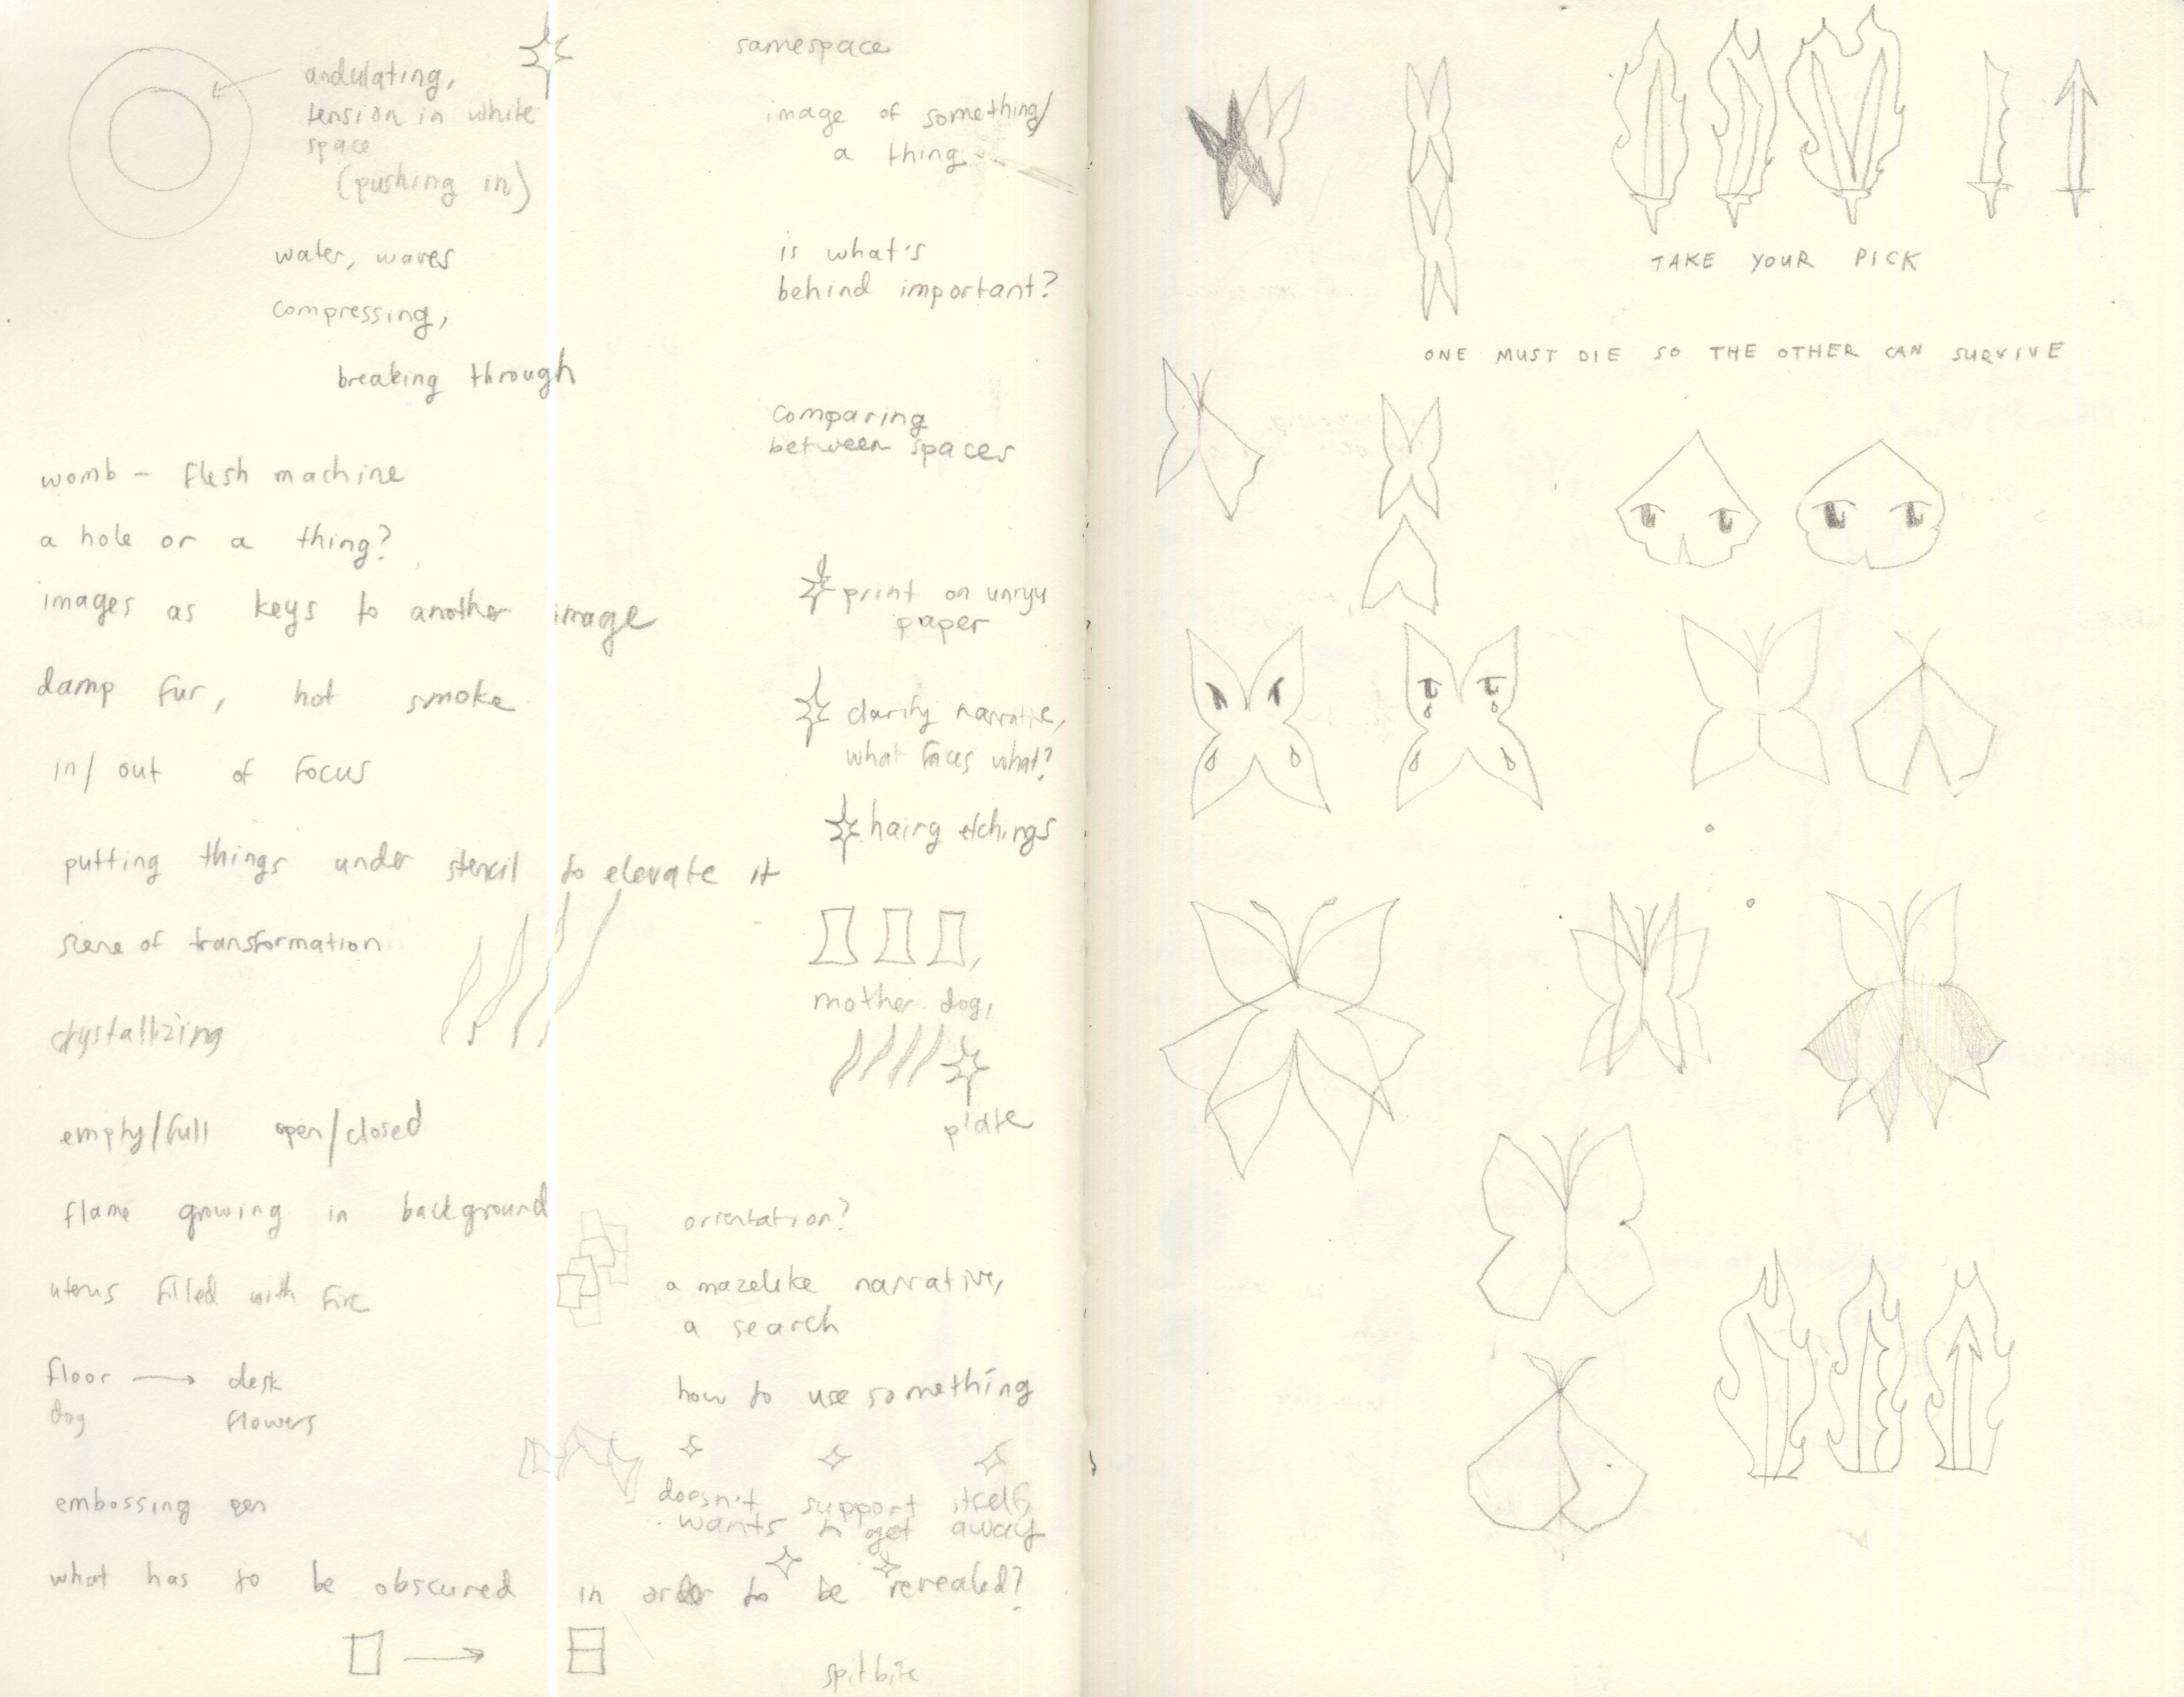 undulating,
tension in white
space
(pushing in)
water, waves
compressing,
breaking through
womb - flesh machine
a hole or a thing?
images as keys to another image
damp fur, hot smoke
in/out of focus
putting things under stencil to elevate it
scene of transformation
crystallizing
empty/full open/closed
flame growing in background
uterus filled with fire
floor → desk
dog flowers
embossing gen
what has to be obscured in order to be revealed?
samespace
image of something/
a thing
is what's
behind important?
comparing
between spaces
print on unryu
paper
clarify narrative,
what faces what?
hairy etchings
mother dog,
plate
orientation?
a mazelike narrative,
a search
how to use something
doesn't support itself,
wants to get away
spitbite
TAKE YOUR PICK
ONE MUST DIE SO THE OTHER CAN SURVIVE